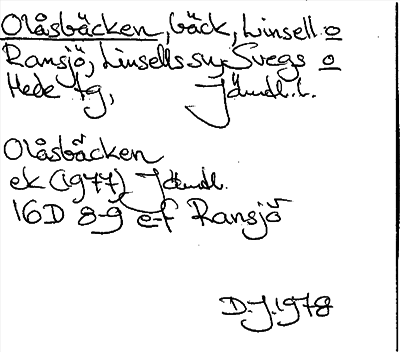 Olåsbäcken, bäck, Linsell o
Ransjö, Linsells sn, Svegs o
Hede tg, Jämtl.l.
Olåsbäcken
ek (1977) Jämtl.
16D 8-9 e-f Ransjö
D.J. 1978